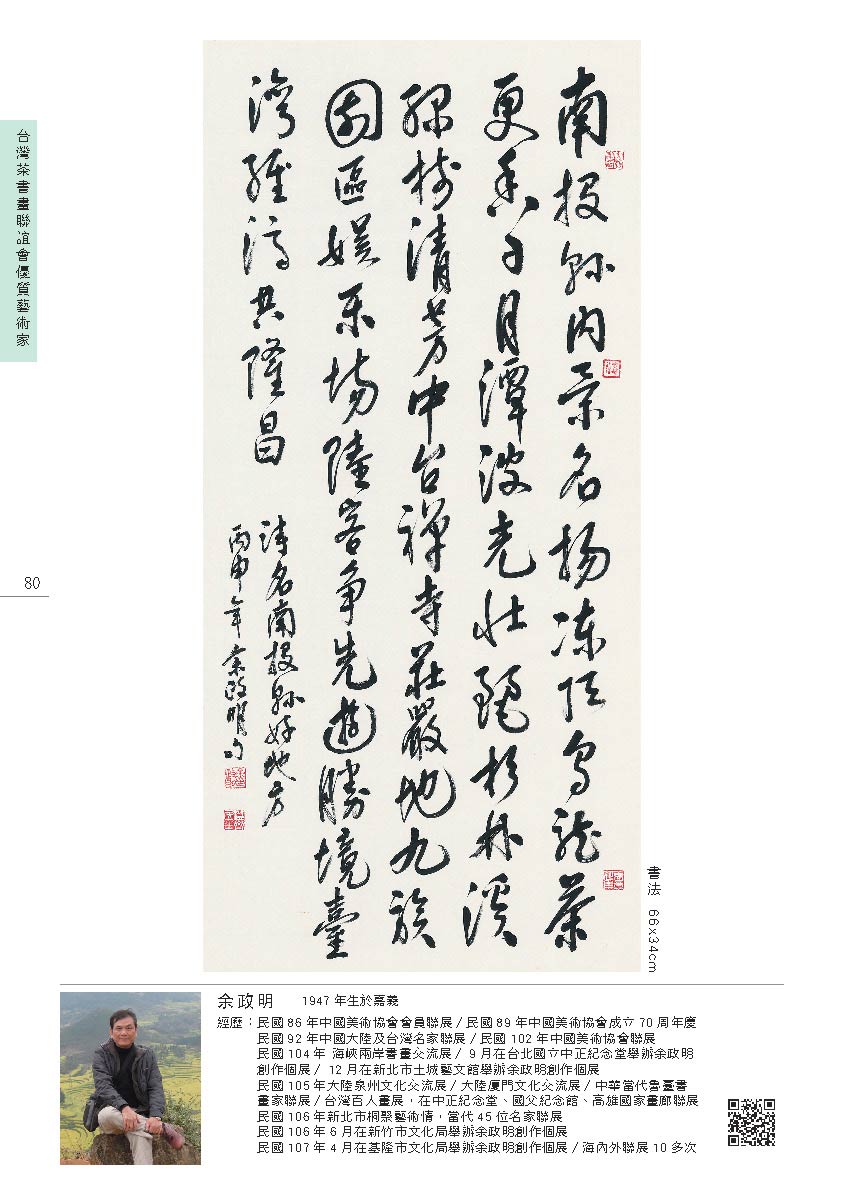 台灣茶書畫聯誼會優質藝術家
80
南投縣內景名揚凍頂烏龍茶
更香日月潭波光壯麗杉林溪
綠樹清芳中台禪寺莊嚴地九族
園區娛樂場陸客爭先遊勝境臺
灣經濟共隆昌
詩名南投縣好地方
丙申年余政明句
書法 66x34cm
余政明 1947 年生於嘉義
經歷：民國 86 年中國美術協會會員聯展 / 民國 89 年中國美術協會成立 70 周年慶
民國 92 年中國大陸及台灣名家聯展 / 民國 102 年中國美術協會聯展
民國 104 年 海峽兩岸書畫交流展 / 9 月在台北國立中正紀念堂舉辦余政明
創作個展 / 12 月在新北市土城藝文館舉辦余政明創作個展
民國 105 年大陸泉州文化交流展 / 大陸廈門文化交流展 / 中華當代魯臺書
畫家聯展 / 台灣百人畫展，在中正紀念堂、國父紀念館、高雄國家畫廊聯展
民國 106 年新北市桐緊藝術情，當代 45 位名家聯展
民國 106 年 6 月在新竹市文化局舉辦余政明創作個展
民國 107 年 4 月在基隆市文化局舉辦余政明創作個展 / 海內外聯展 10 多次